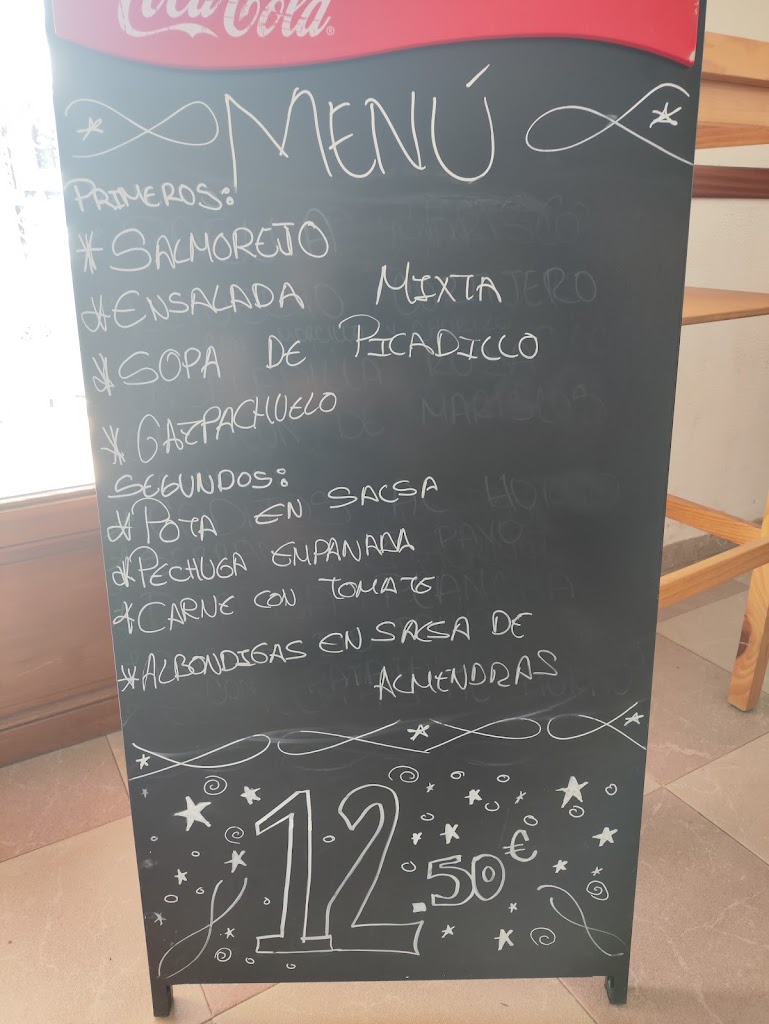 Coca-Cola
MENÚ
PRIMEROS:
* SALMOREJO
* ENSALADA MIXTA
* SOPA DE PICADILLO
* GAZPACHUELO
SEGUNDOS:
* POTA EN SALSA
* PECHUGA EMPANADA
* CARNE CON TOMATE
* ALBONDIGAS EN SALSA DE
ALMENDRAS
12.50€